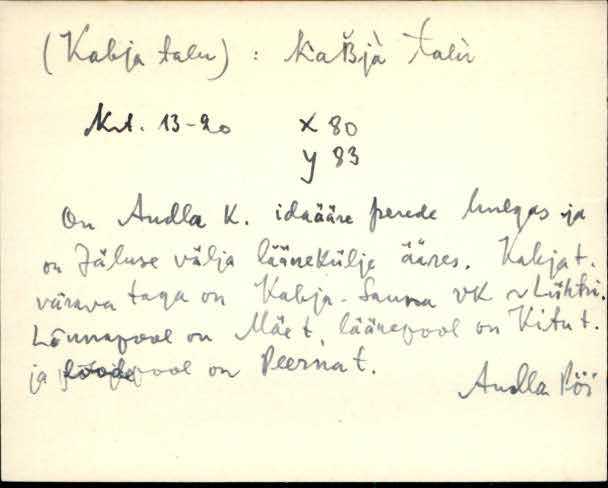 (Kabja talu) : kàB̆jà talù
Krt. 13-20 X 80
y 83
On Audla K. idaääre perede hulgas ja
on Jäluse välja läänekülje ääres. Kabja t.
värava taga on Kabja-Sauna VK ~ Lühtri.
Lõunapool on Mäe t, läänepool on Kitu t.
ja loodepool on Peerna t.
Audla Pöi